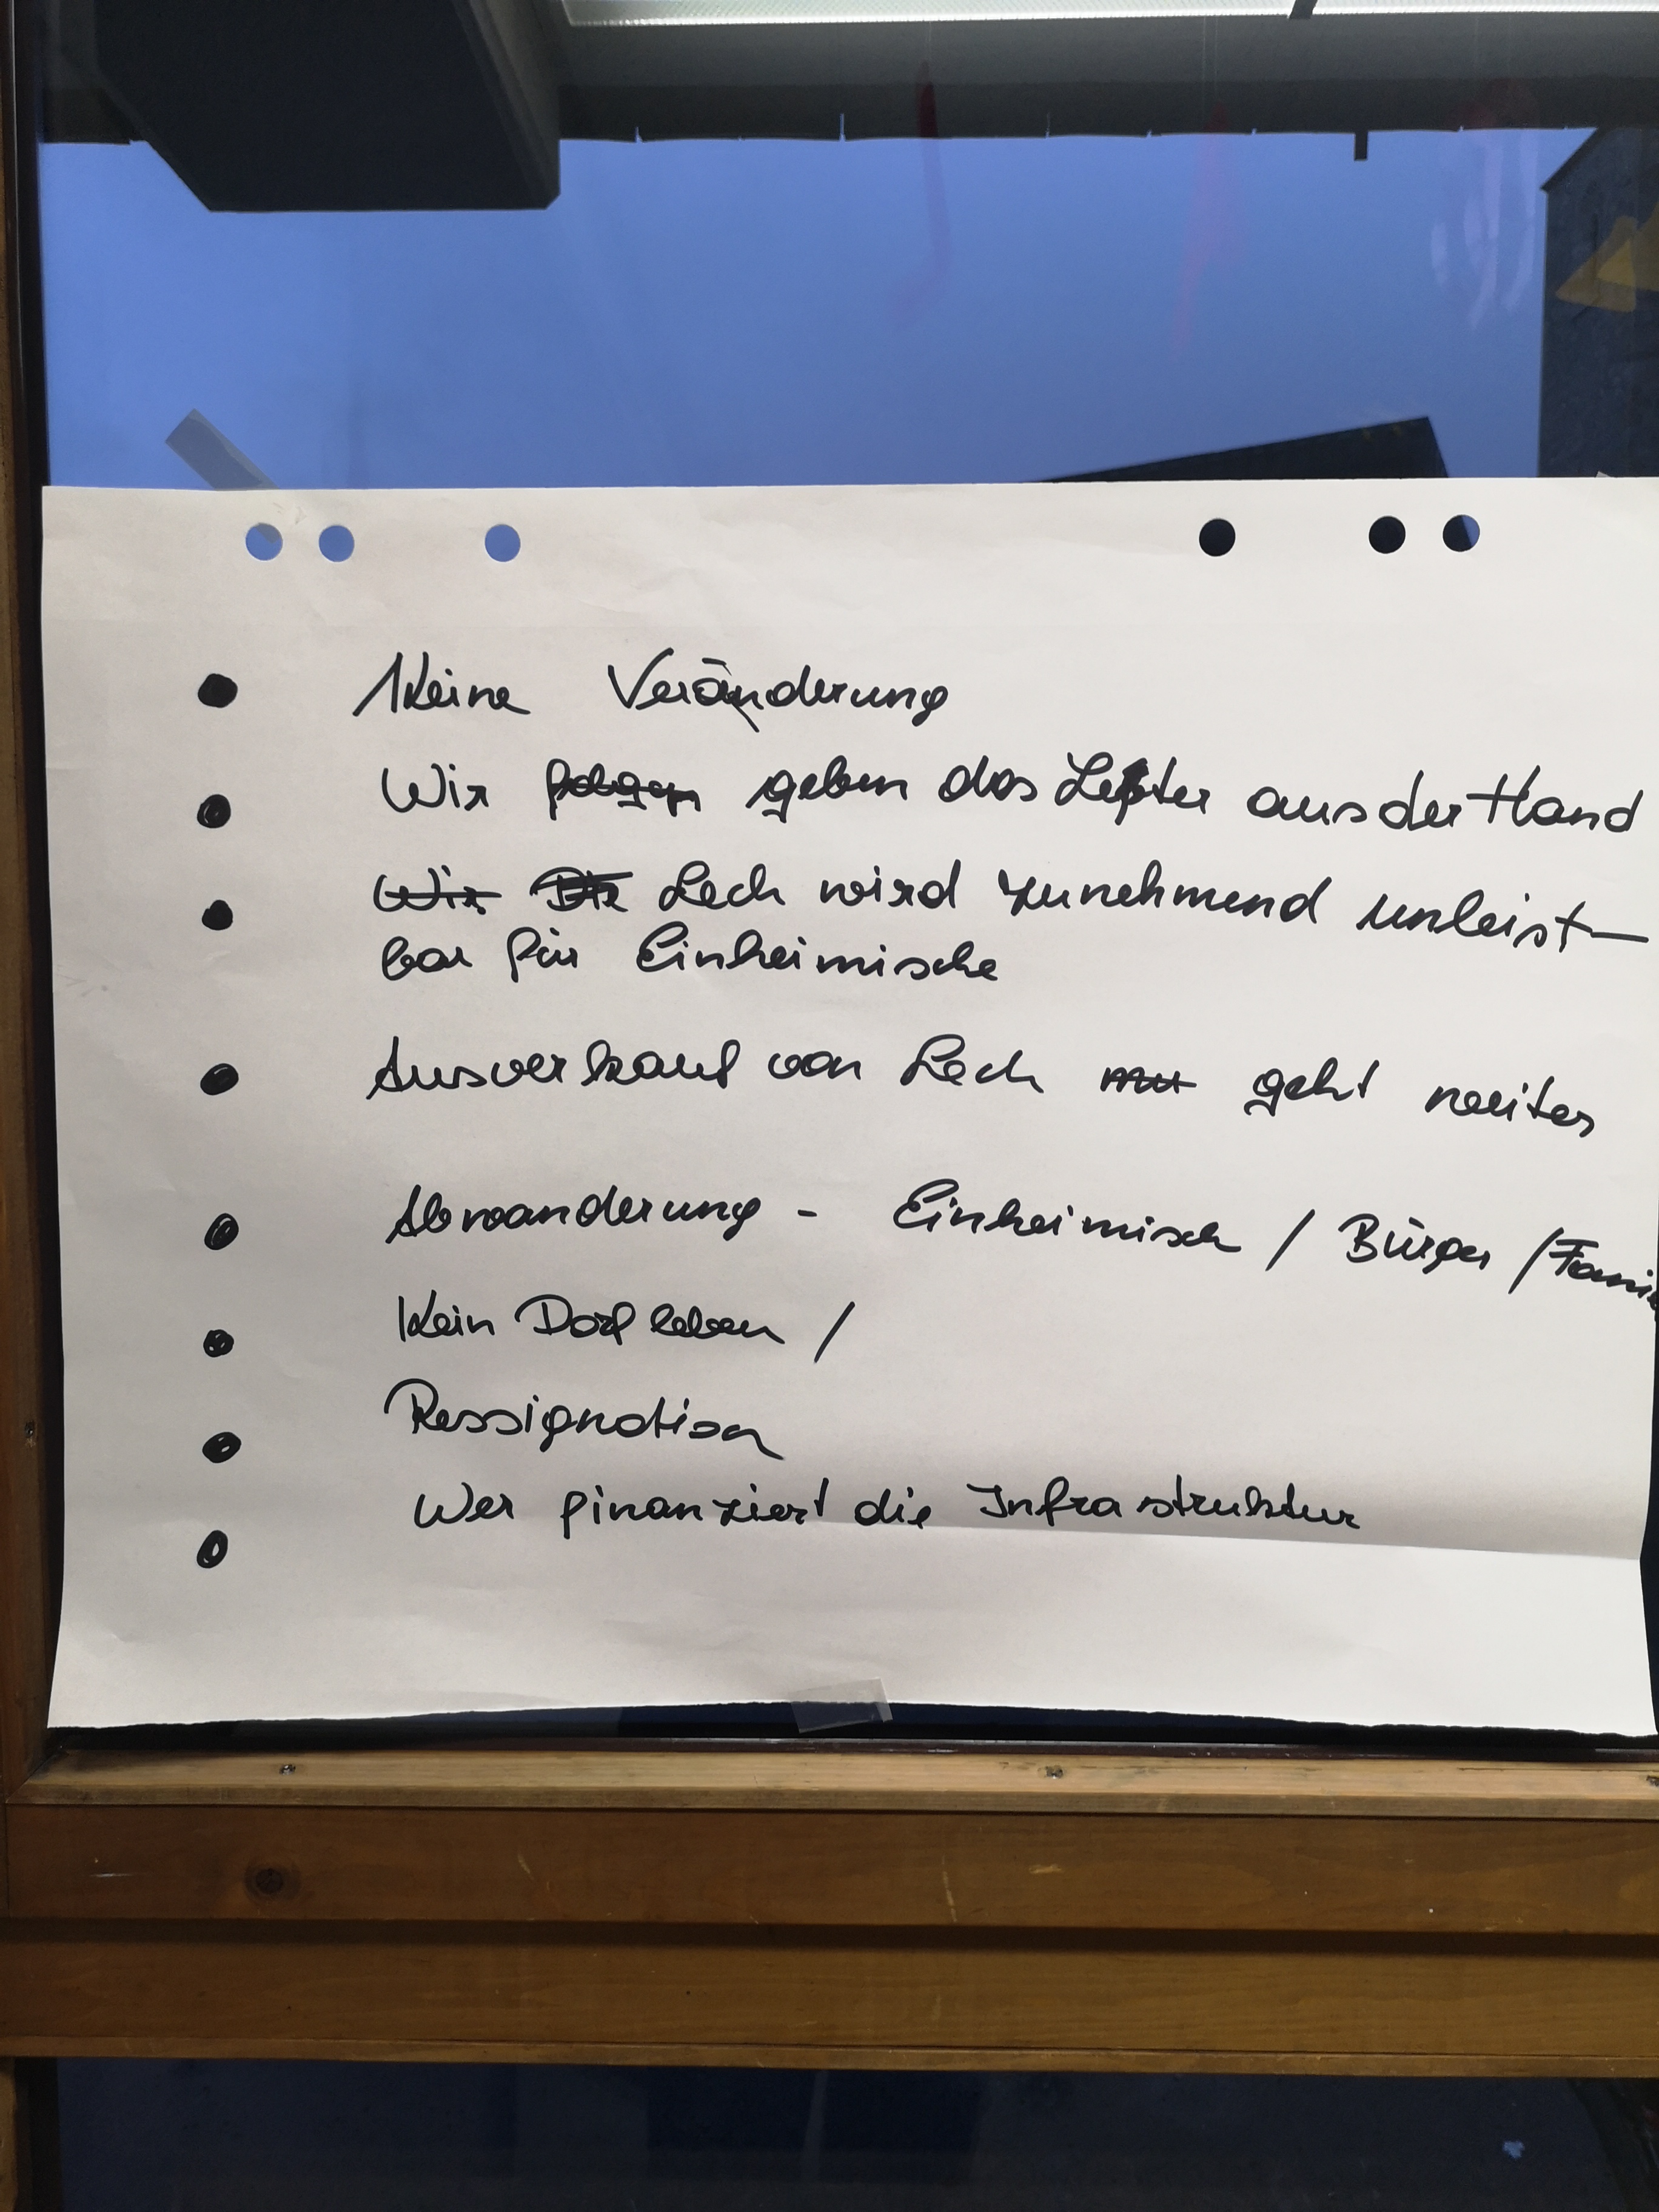 • Keine Veränderung
• Wir geben das Zepter aus der Hand
• Wir Die Lech wird zunehmend unleist-
bar für Einheimische
• Ausverkauf von Lech geht weiter
• Abwanderung - Einheimisch / Bürger / Famil
• Kein Dorfleben /
• Ressignation
• Wer finanziert die Infrastruktur